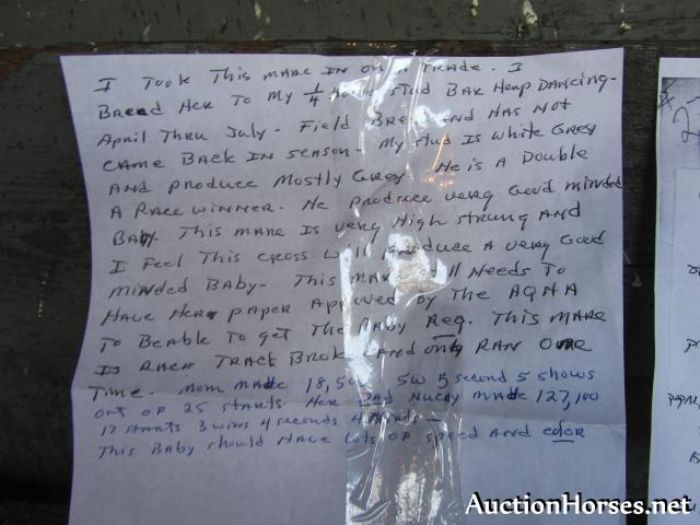 I Took This mare IN ON A TRADE. I
Bread Her To My 1/4 Horse stud BAR Heap DANCING-
April Thru July- Field Bred And HAS NOT
CAME BACK IN season- My stud Is White Grey
AND produce MOSTLY Grey He is A Double
A RACE WINNER. He produce very Good minded
BABY. This MARE Is very High strung AND
I Feel This cross will produce A very Good
MINDED BABY- This MARE still Needs To
HAVE Her PAPER Approved By The AQHA
To BeAble To get The Baby Reg. This MARE
Is RACE TRACK Brok and only RAN One
Time. Mom MADE 18,5 5w 5 second 5 shows
OUT OF 25 STARTS Her Dad MADE 127,100
17 STARTS 3 wins 4 seconds 4
This BABY should HAVE LOTS OF speed AND color
AuctionHorses.net